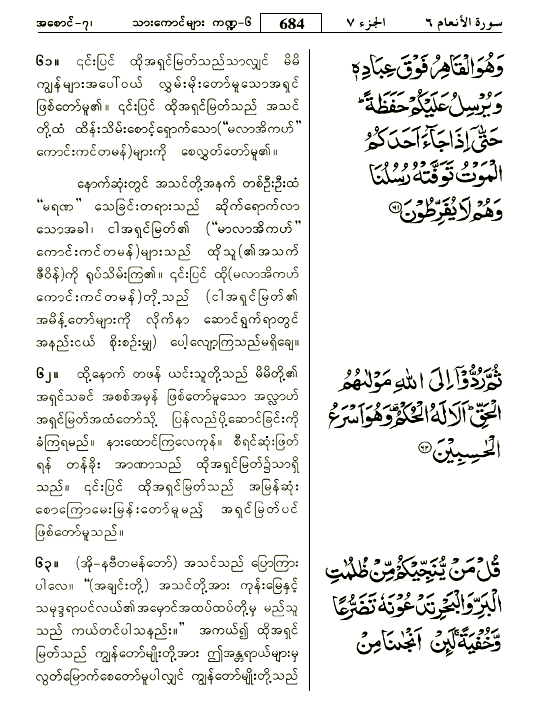 အစောင်-၇၊ သားကောင်များ ကဏ္ဍ-၆ 684 الجزء ٧ سورة الأنعام ٦
၆၁။ ၎င်းပြင် ထိုအရှင်မြတ်သည်သာလျှင် မိမိ
ကျွန်များအပေါ်ဝယ် လွှမ်းမိုးတော်မူသောအရှင်
ဖြစ်တော်မူ၏။ ၎င်းပြင် ထိုအရှင်မြတ်သည် အသင်
တို့ထံ ထိန်းသိမ်းစောင့်ရှောက်သော(“မလာအိကဟ်”
ကောင်းကင်တမန်)များကို စေလွှတ်တော်မူ၏။
နောက်ဆုံးတွင် အသင်တို့အနက် တစ်ဦးဦးထံ
“မရဏ” သေခြင်းတရားသည် ဆိုက်ရောက်လာ
သောအခါ၊ ငါအရှင်မြတ်၏ (“မာလာအိကဟ်”
ကောင်းကင်တမန်)များသည် ထိုသူ(၏အသက်
ဇီဝိန်)ကို ရုပ်သိမ်းကြ၏။ ၎င်းပြင် ထို(မလာအိကဟ်
ကောင်းကင်တမန်)တို့သည် (ငါအရှင်မြတ်၏
အမိန့်တော်များကို လိုက်နာ ဆောင်ရွက်ရာတွင်
အနည်းငယ် စိုးစဉ်းမျှ) ပေါ့လျော့ကြသည်မရှိချေ။
၆၂။ ထို့နောက် တဖန် ယင်းသူတို့သည် မိမိတို့၏
အရှင်သခင် အစစ်အမှန် ဖြစ်တော်မူသော အလ္လာဟ်
အရှင်မြတ်အထံတော်သို့ ပြန်လည်ပို့ဆောင်ခြင်းကို
ခံကြရမည်။ နားထောင်ကြလေကုန်။ စီရင်ဆုံးဖြတ်
ရန် တန်ခိုး အာဏာသည် ထိုအရှင်မြတ်၌သာရှိ
သည်။ ၎င်းပြင် ထိုအရှင်မြတ်သည် အမြန်ဆုံး
စောကြောမေးမြန်းတော်မူမည့် အရှင်မြတ်ပင်
ဖြစ်တော်မူသည်။
၆၃။ (အို-နဗီတမန်တော်) အသင်သည် ပြောကြား
ပါလေ။ “(အချင်းတို့) အသင်တို့အား ကုန်းမြေနှင့်
သမုဒ္ဒရာပင်လယ်၏အမှောင်အထပ်ထပ်တို့မှ မည်သူ
သည် ကယ်တင်ပါသနည်း။” အကယ်၍ ထိုအရှင်
မြတ်သည် ကျွန်တော်မျိုးတို့အား ဤအန္တရာယ်များမှ
လွတ်မြောက်စေတော်မူပါလျှင် ကျွန်တော်မျိုးတို့သည်
وَهُوَ الْقَاهِرُ فَوْقَ عِبَادِهٖ
وَيُرْسِلُ عَلَيْكُمْ حَفَظَةً ؕ
حَتّٰۤى اِذَا جَآءَ اَحَدَكُمُ
الْمَوْتُ تَوَفَّتْهُ رُسُلُنَا
وَهُمْ لَا يُفَرِّطُوْنَ ﴿٦١﴾
ثُمَّ رُدُّوْۤا اِلَى اللّٰهِ مَوْلٰىهُمُ
الْحَقِّ ؕ اَلَا لَهُ الْحُكْمُ ۫ وَهُوَ اَسْرَعُ
الْحٰسِبِيْنَ ﴿٦٢﴾
قُلْ مَنْ يُّنَجِّيْكُمْ مِّنْ ظُلُمٰتِ
الْبَرِّ وَالْبَحْرِ تَدْعُوْنَهٗ تَضَرُّعًا
وَّخُفْيَةً ۚ لَئِنْ اَنْجٰىنَا مِنْ